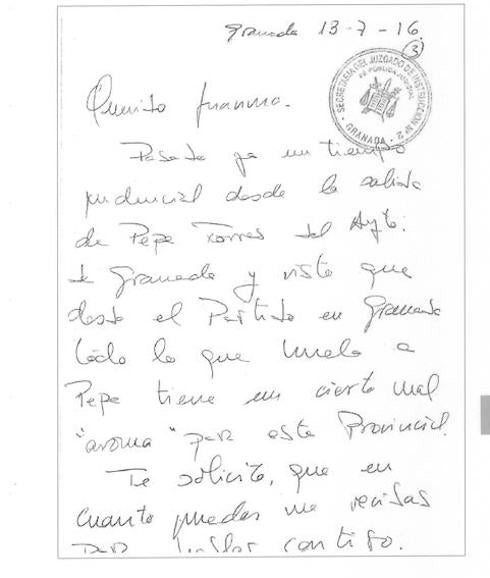 Granada 13-7-16.
3
SECRETARIA DEL JUZGADO DE INSTRUCCION Nº 2
FE PÚBLICA JUDICIAL
· GRANADA ·
Querido Juanma.
Pasado ya un tiempo
prudencial desde la salida
de Pepe Torres del Ayto.
de Granada y visto que
desde el Partido en Granada
todo lo que huela a
Pepe tiene un cierto mal
"aroma" para este Provincial.
Te solicito, que en
cuanto puedas me recibas
para hablar contigo.